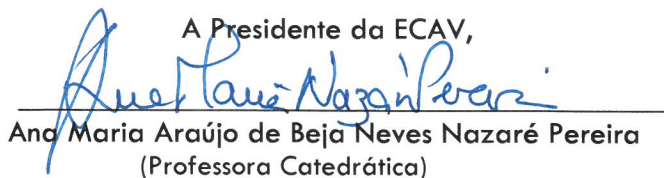 A Presidente da ECAV,
Ana Maria Nazaré Pereira
Ana Maria Araújo de Beja Neves Nazaré Pereira
(Professora Catedrática)